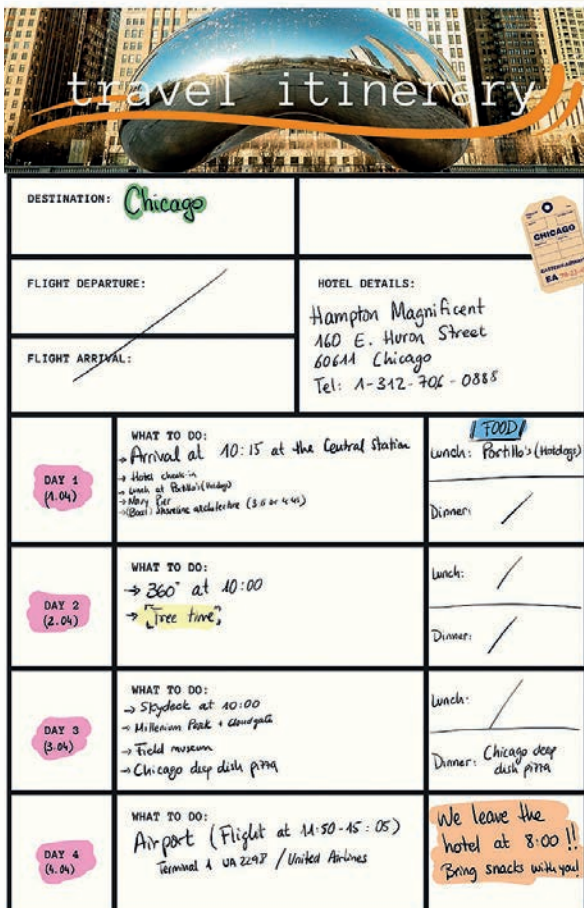 travel itinerary
DESTINATION: Chicago
CHICAGO
EA
FLIGHT DEPARTURE:
FLIGHT ARRIVAL:
HOTEL DETAILS:
Hampton Magnificent
160 E. Huron Street
60611 Chicago
Tel: 1-312-706-0888
DAY 1
(1.04)
WHAT TO DO:
→ Arrival at 10:15 at the Central Station
→ Hotel check-in
→ Lunch at Portillo's (Hotdogs)
→ Navy Pier
→ (Boat) Shoreline architecture
FOOD
Lunch: Portillo's (Hotdogs)
Dinner:
DAY 2
(2.04)
WHAT TO DO:
→ 360° at 10:00
→ "Free time"
Lunch:
Dinner:
DAY 3
(3.04)
WHAT TO DO:
→ Skydeck at 10:00
→ Millenium Park + Cloudgate
→ Field museum
→ Chicago deep dish pizza
Lunch:
Dinner: Chicago deep
dish pizza
DAY 4
(4.04)
WHAT TO DO:
Airport (Flight at 11:50-15:05)
Terminal 1 UA 2298 / United Airlines
We leave the
hotel at 8:00 !!
Bring snacks with you!